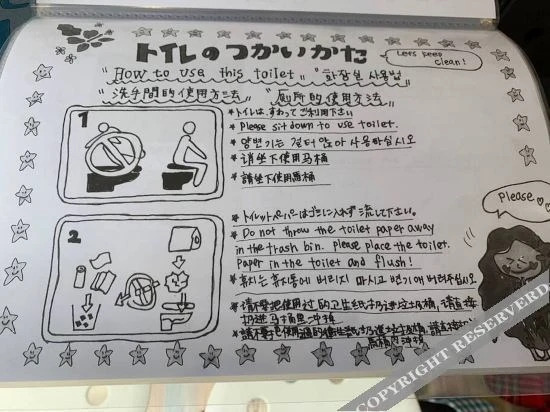 トイレのつかいかた
Let's keep clean!
"How to use this toilet" "화장실 사용법"
"洗手間的使用方法" "厕所的使用方法"
1
*トイレは、すわってご利用下さい
*Please sit down to use toilet.
*양변기는 걸터 앉아 사용하십시오
*请坐下使用马桶
*請坐下使用馬桶
Please
2
*トイレットペーパーはゴミに入れず流して下さい。
*Do not throw the toilet paper away
in the trash bin. please place the toilet.
Paper in the toilet and flush!
*휴지는 휴지통에 버리지 마시고 변기에 버려주십시오
*请不要把使用过的卫生纸扔进这扔桶,请直接
扔进马桶里冲掉
*請不要把使用過的衛生紙扔進垃圾桶,請直接扔
馬桶內沖掉
COPYRIGHT RESERVED